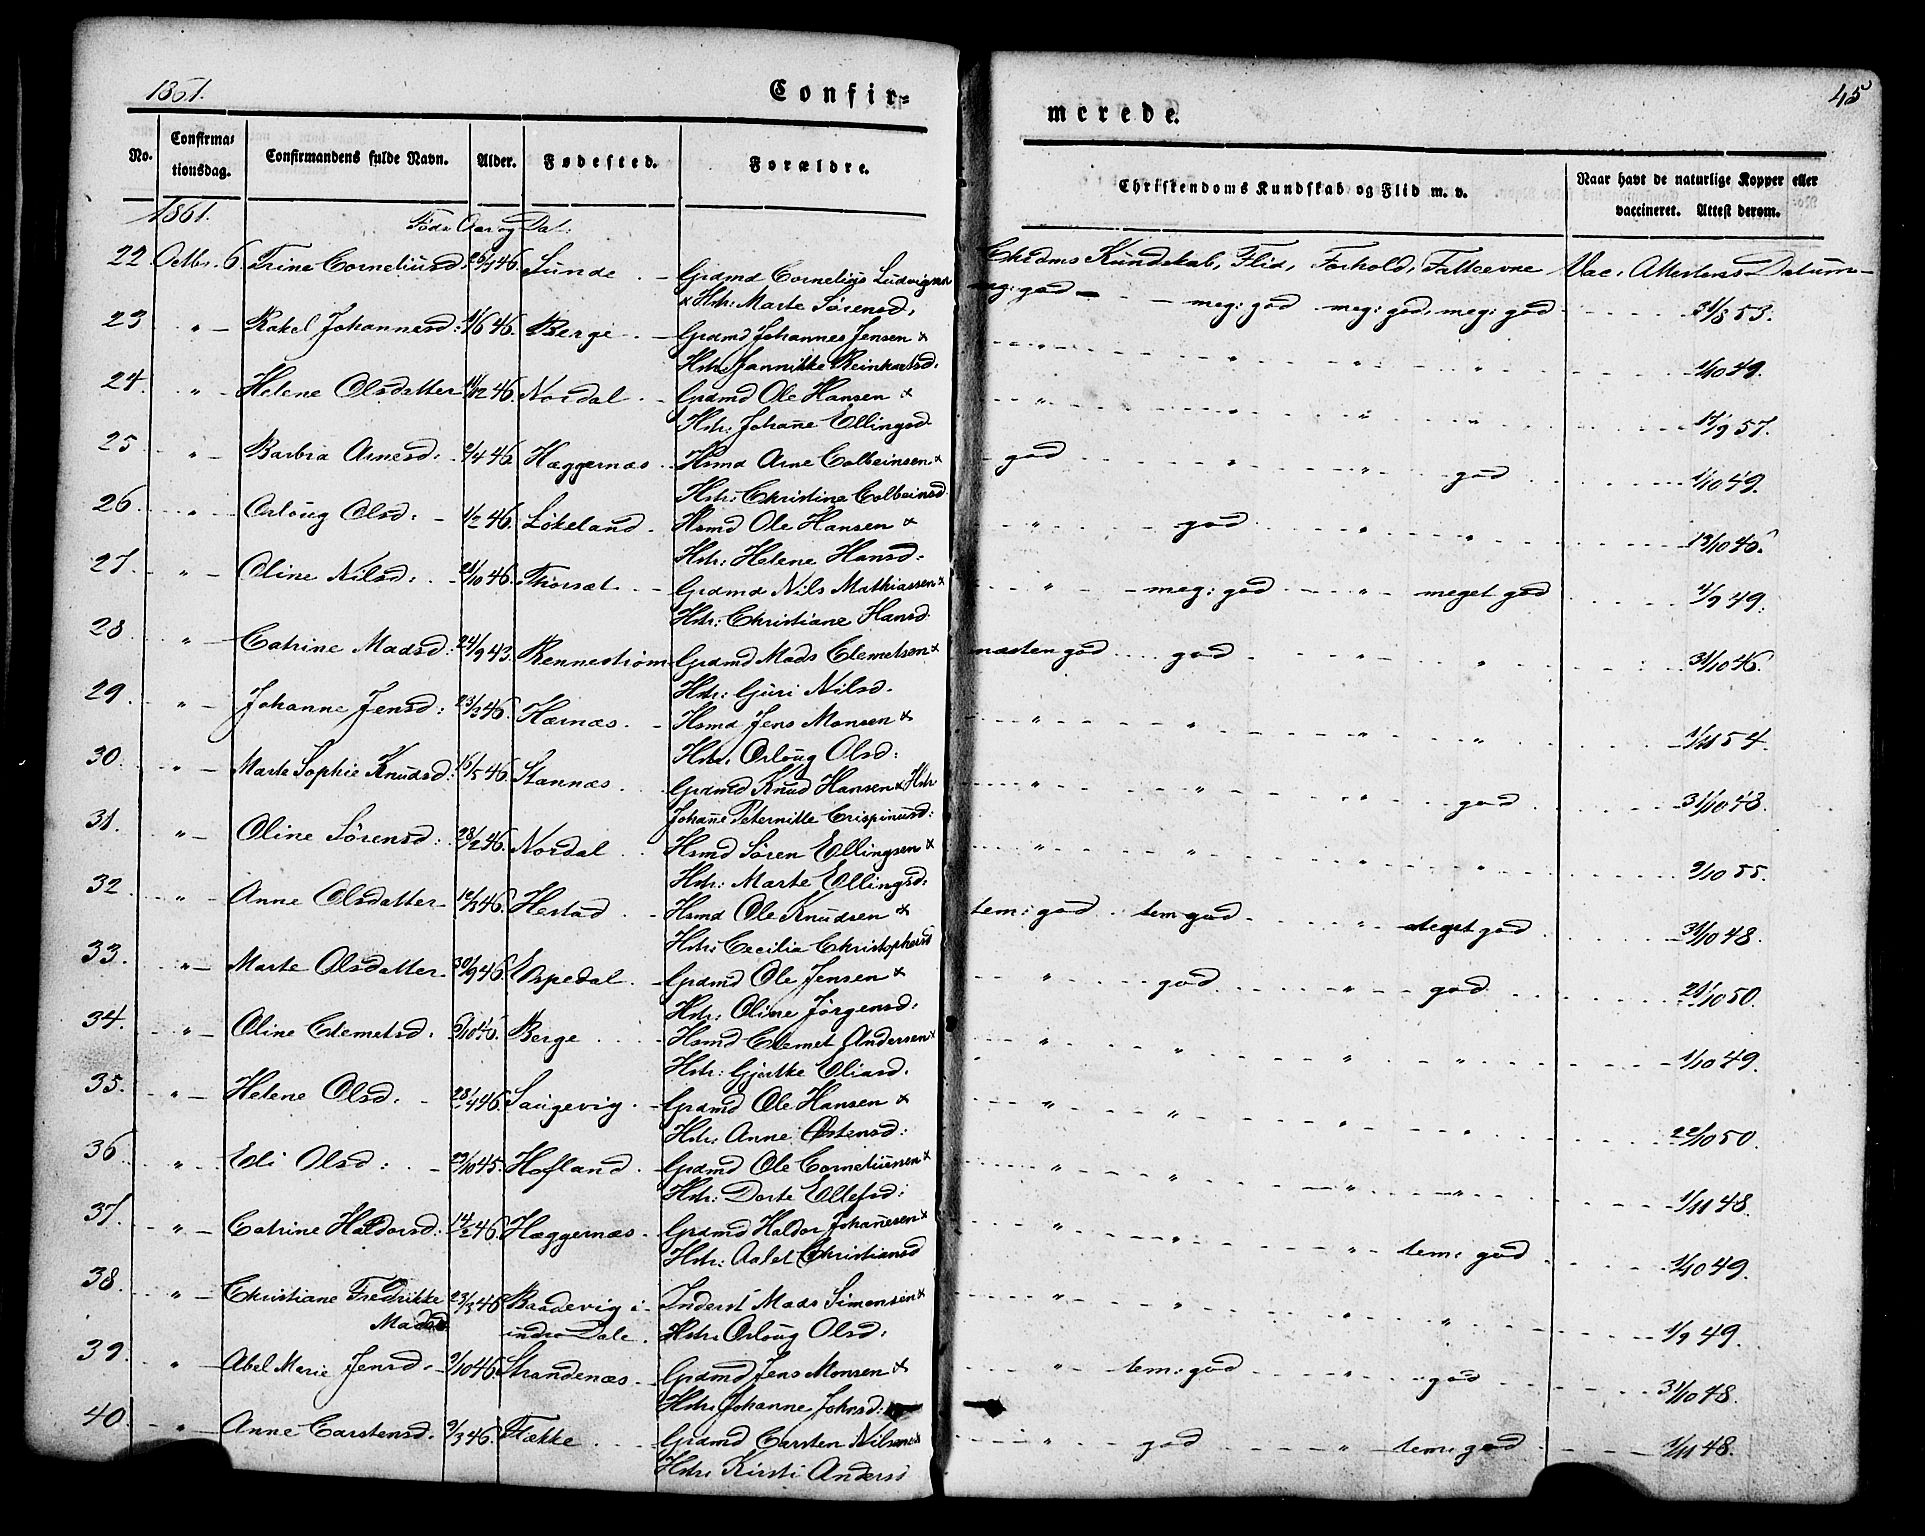 1861.
Confir=
merede.
45
No.
Confirma=
tionsdag.
Confirmandens fulde Navn.
Alder.
Fødested.
Forældre.
Christendoms Kundskab og Flid m. v.
Naar havt de naturlige Kopper eller
vaccineret. Attest derom.
1861.
Føds Aar og Dat.
Chrdms Kundskab, Flid, Forhold, Fatteevne Vac. Attestens Datum
22. Octbr. 6. Trine Corneliusd. 46. Sunde Grdmd Cornelius Ludvigsen
& Hstr: Marte Sørensd. meg: god meg: god meg: god, meg: god 53.
23 " Rakel Johannesd: 46 Berge Grdmd Johannes Jensen &
Hstr: Jannikke Reinhartsd. " " " " 1/10 49.
24. " Helene Olsdatter 46. Nordal Grdmd Ole Hansen &
Hstr: Johañe Ellingsd. " " " " 57.
25 " Barbra Arnesd. 46 Hæggernæs Hsmd Arne Colbeinsen &
Hstr: Christine Colbeinsd. god " " god 1/10 49.
26 " Orloug Olsd: 1/2 46. Løkeland Hsmd Ole Hansen &
Hstr: Helene Hansd: " god " "
27. " Oline Nilsd: 21/10 46. Thorsæt Grdmd Nils Mathiassen &
Hstr: Christiane Hansd. " meg: god " meget god 49.
28 " Catrine Madsd: 24/9 43. Rennestrøm Grdmd Mads Clemetsen &
Hstr: Guri Nilsd. næsten god god " " 31/10 46.
29 " Johanne Jensd: 46. Hærnæs Hsmd Jens Monsen &
Hstr. Orloug Olsd: " " " " 1/11 54.
30. " Marte Sophie Knudsd: 16/5 46. Stannæs Grdmd Knud Hansen & Hstr
Johañe Peternille Crispinusd: " " " god 31/10 48.
31. " Oline Sørensd: 28/2 46. Nordal Hsmd Søren Ellingsen &
Hstr: Marte Ellingsd: " " " " 55.
32 " Anne Olsdatter 46. Hestad Hsmd Ole Knudsen &
Hstr: Cecilia Christophersd tem: god tem: god " meget god 31/10 48.
33. " Marte Olsdatter 30/9 46. Espedal Grdmd Ole Jensen &
Hstr: Oline Jørgensd: " god " god 21/10 50.
34. " Oline Clemetsd. 46. Berge Hsmd Clemet Andersen &
Hstr: Gjertke Eliasd. " " " " 1/10 49.
35. " Helene Olsd. 28/4 46. Saugevig Grdmd Ole Hansen &
Hstr: Anne Ostensd: " " " " 22/10 50.
36 " Eli Olsd: 45. Hofland Grdmd Ole Corneliussen &
Hstr: Dorte Ellefsd: " " " " 1/11 48.
37. " Catrine Haldorsd: 14/2 46. Hæggernæs Grdmd Haldor Johañesen &
Hstr: Aalet Christiansd " " " tem: god 1/10 49.
38. " Christiane Fredrikke 23/3 46 Baadevig i Inderst Mads Simonsen &
Madsd indre Dale. Hstr. Orloug Olsd: " " " " 1/9 49.
39. " Abel Marie Jensd. 46. Strandenæs Grdmd Jens Monsen &
Hstr. Johanne Johsd: " tem: god " god 31/10 48.
40. " Anne Carstensd. 46. Flække Grdmd Carsten Nilsen &
Hstr. Kirsti Andersd " god " tem: god 1/11 48.